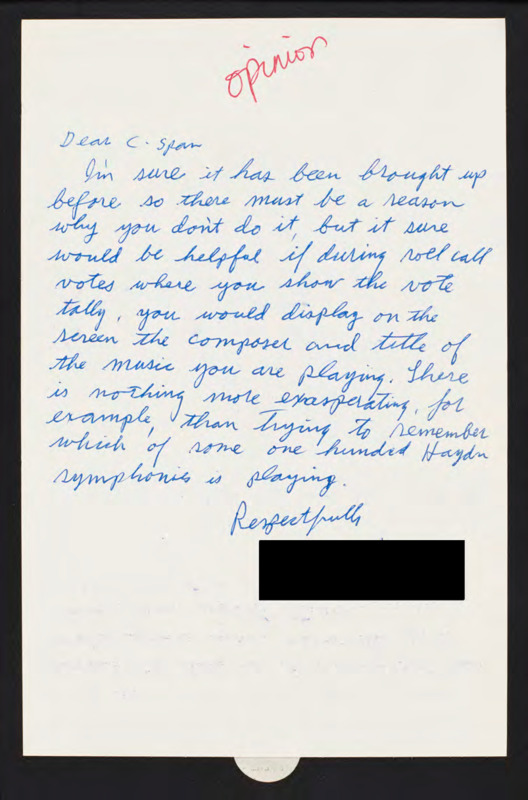 opinion
Dear C-Span
I'm sure it has been brought up
before so there must be a reason
why you don't do it, but it sure
would be helpful if during roll call
votes where you show the vote
tally, you would display on the
screen the composer and title of
the music you are playing. There
is nothing more exasperating, for
example, than trying to remember
which of some one hundred Haydn
symphonies is playing.
Respectfully